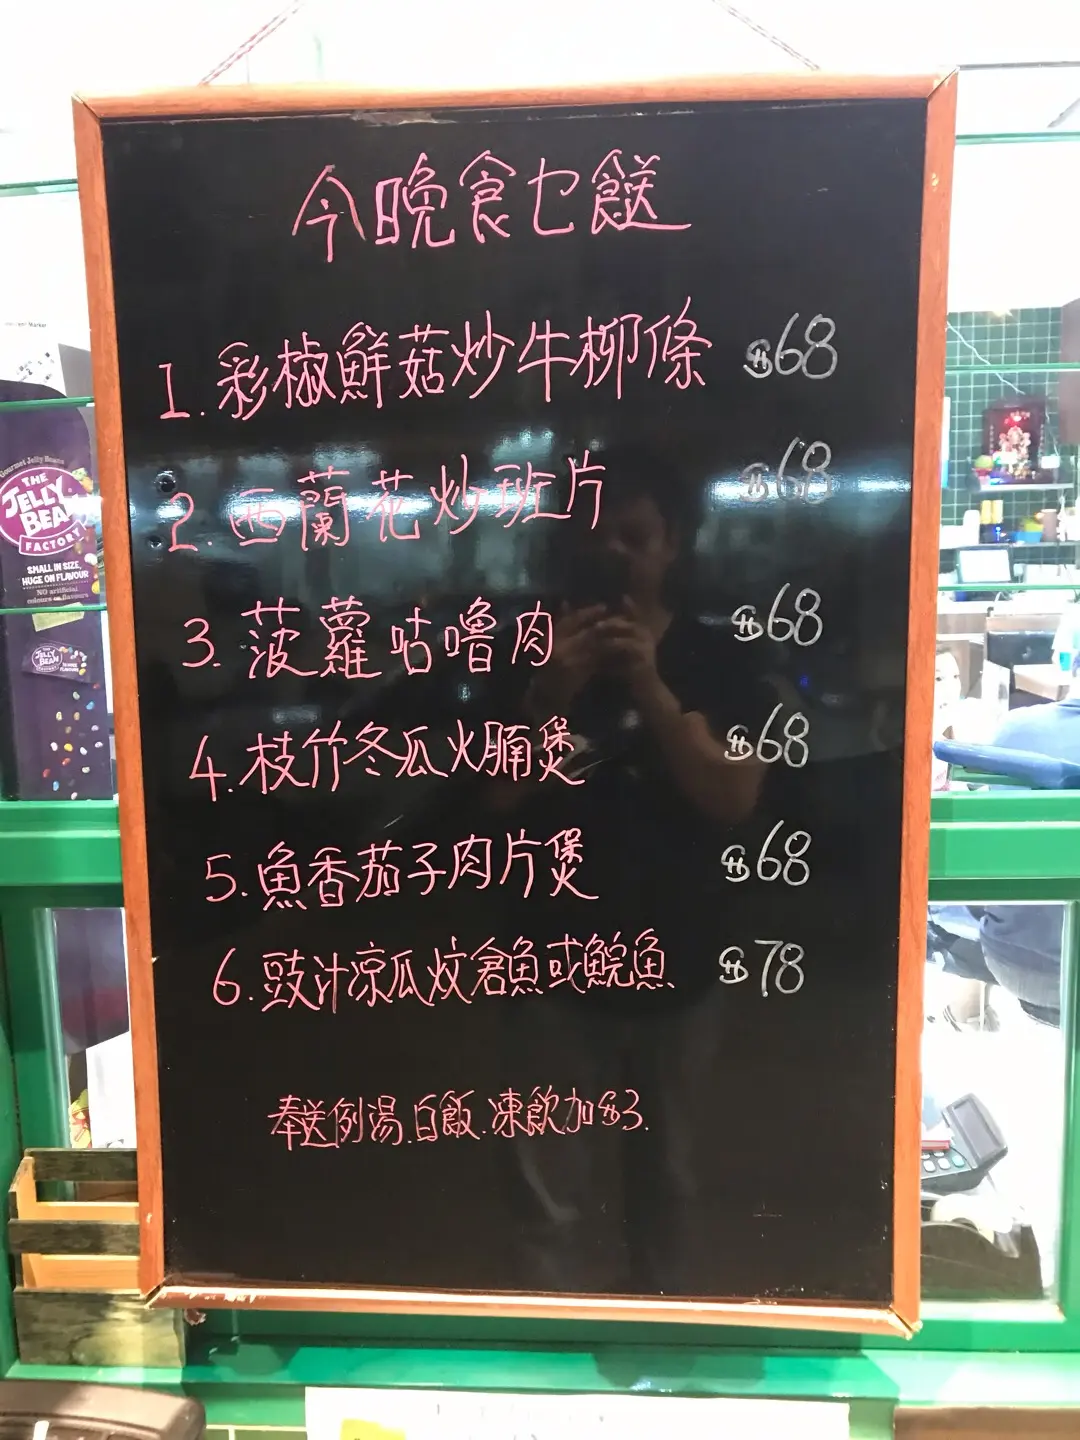 今晚食乜餸
1. 彩椒鮮菇炒牛柳條 $68
2. 西蘭花炒班片 $68
3. 菠蘿咕嚕肉 $68
4. 枝竹冬瓜火腩煲 $68
5. 魚香茄子肉片煲 $68
6. 豉汁涼瓜炆倉魚或鯇魚 $78
奉送例湯.白飯.凍飲加$3.
Gourmet Jelly Beans
THE
JELLY
BEAN
FACTORY
SMALL IN SIZE,
HUGE ON FLAVOUR
NO artificial
colours or flavours